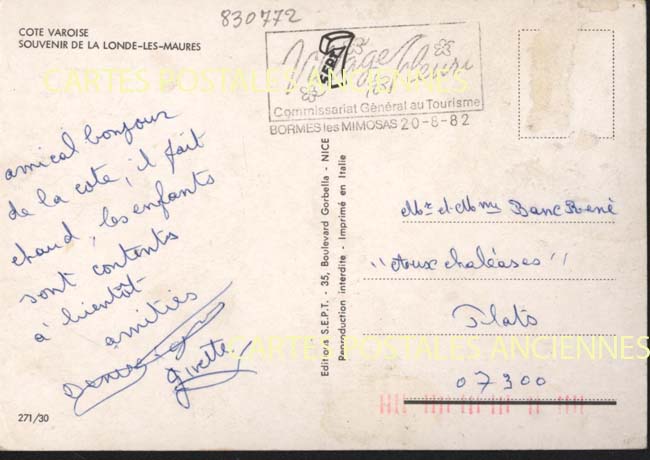 830772
COTE VAROISE
SOUVENIR DE LA LONDE-LES-MAURES
Village fleuri
Commissariat Général au Tourisme
BORMES les MIMOSAS 20-8-82
CARTES POSTALES ANCIENNES
amical bonjour
de la cote, il fait
chaud, les enfants
sont contents
à bientôt
amitiés
Ginette
271/30
Editions S.E.P.T. - 35, Boulevard Gorbella - NICE
Reproduction interdite - Imprimé en Italie
SEPT
Mr et Mme Banc René
Plats
CARTES POSTALES ANCIENNES
07300